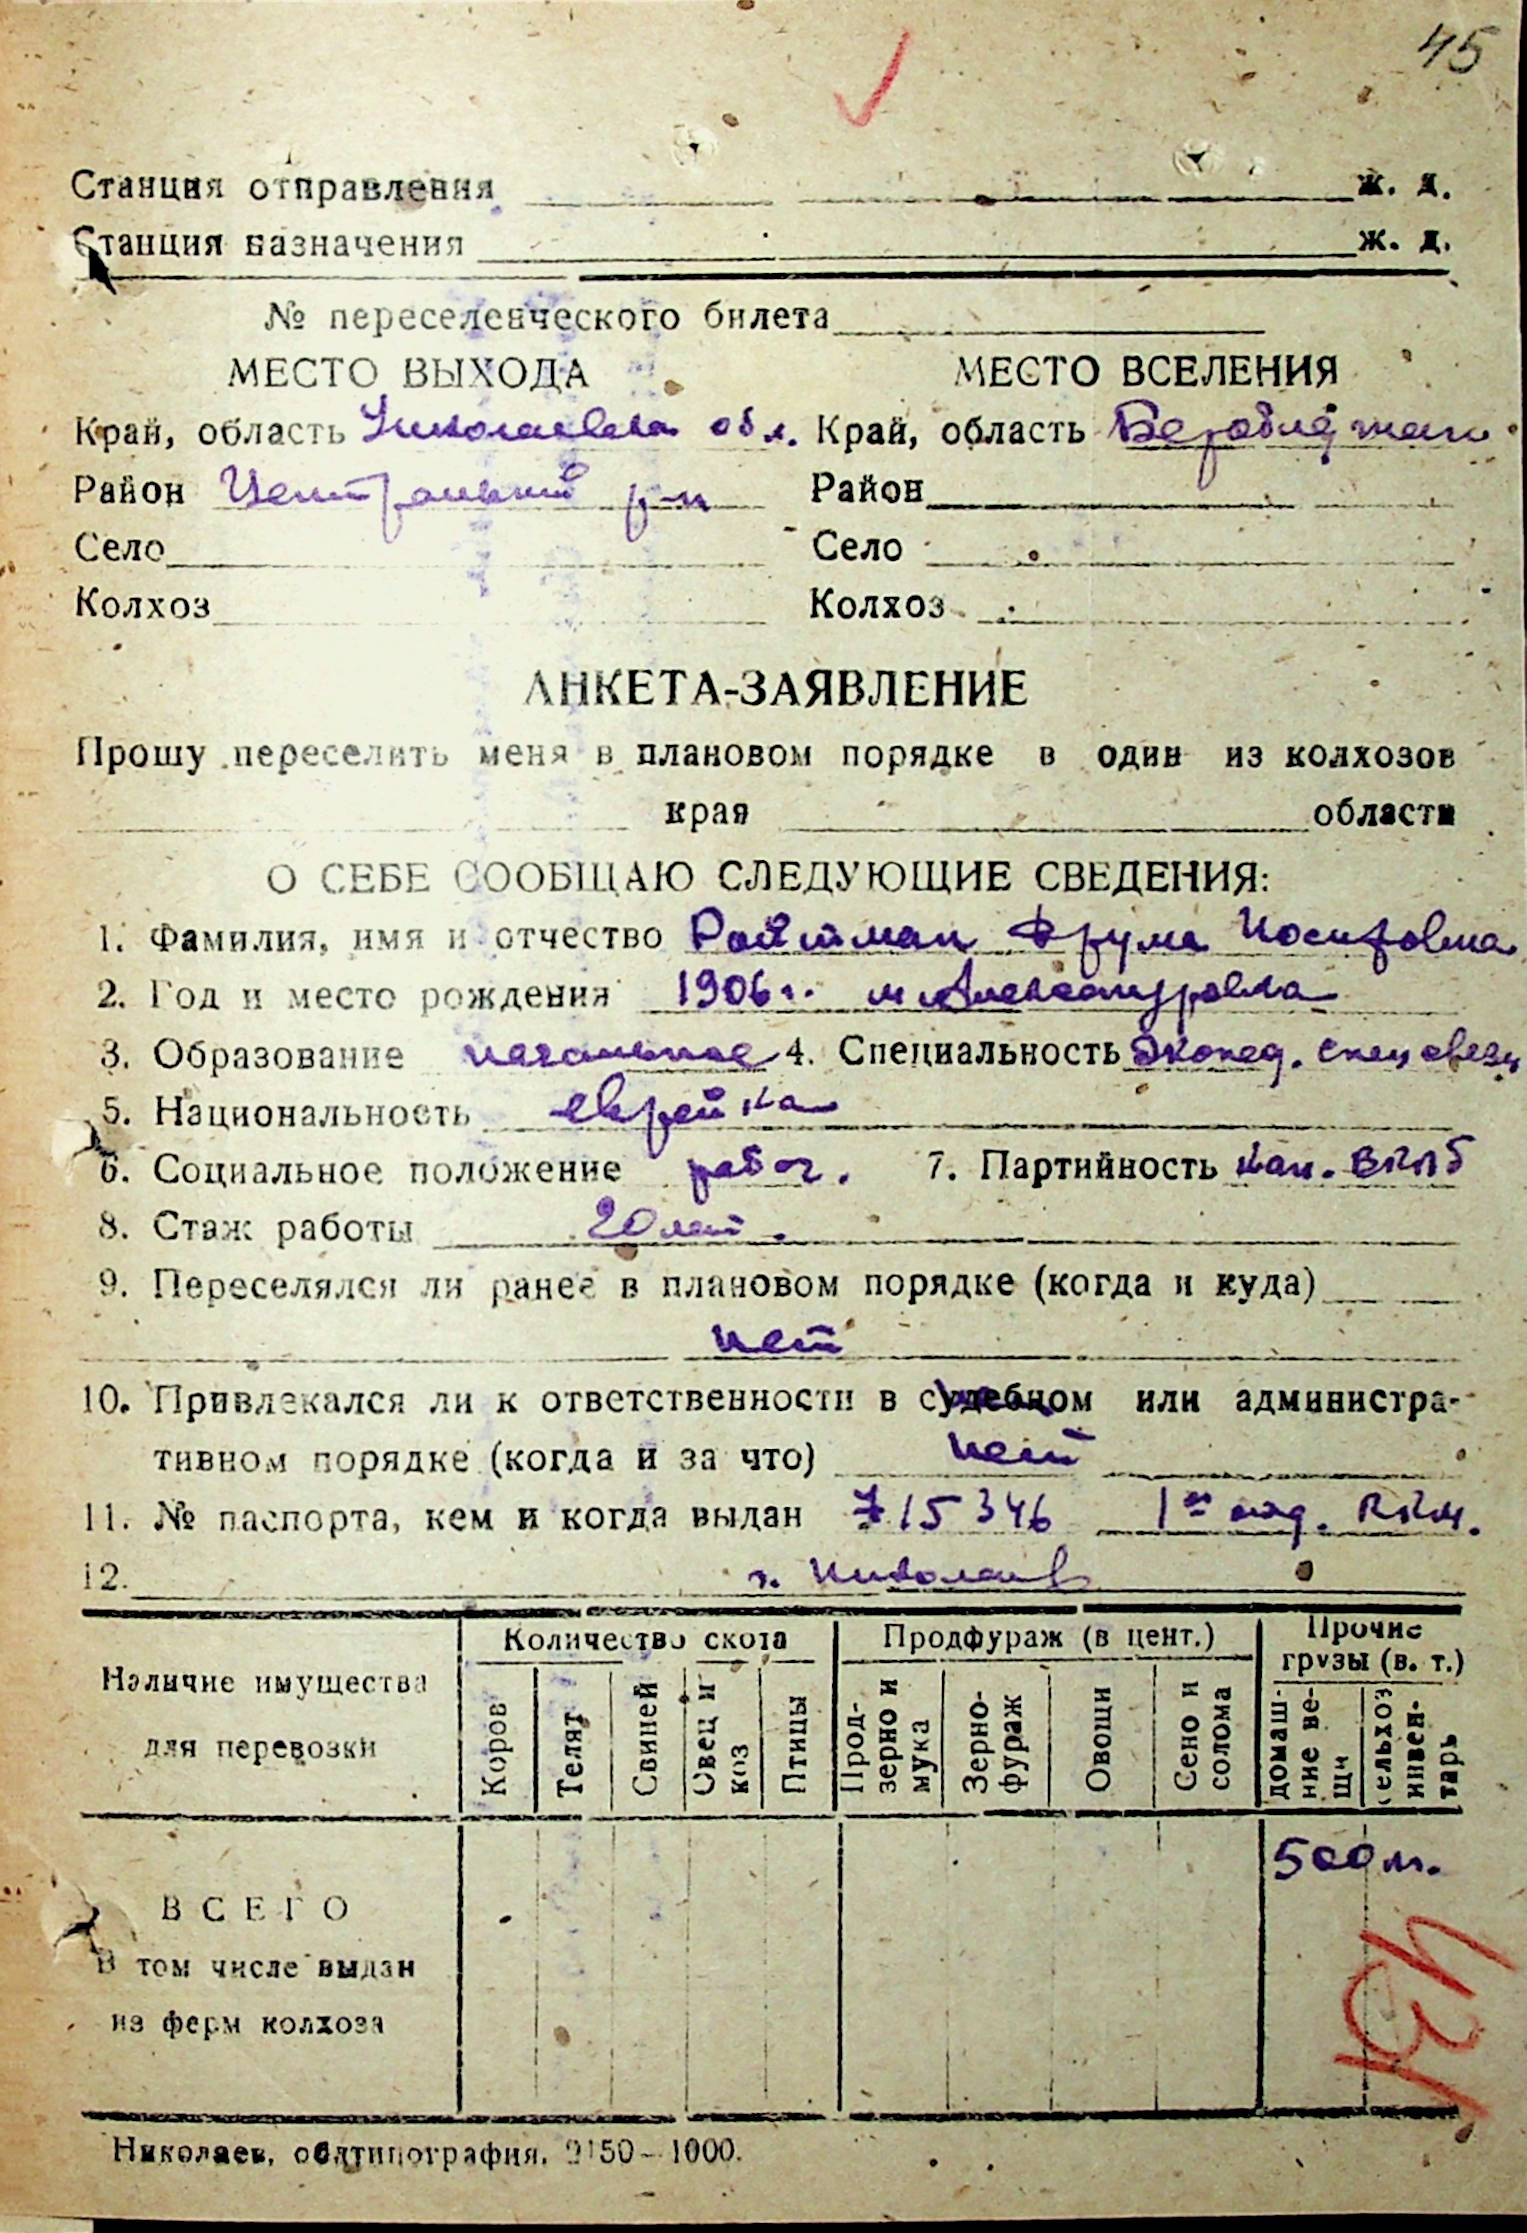 45
Станция отправления ж. д.
Станция назначения ж. д.
№ переселенческого билета
МЕСТО ВЫХОДА МЕСТО ВСЕЛЕНИЯ
Край, область Николаевская обл. Край, область Беробиджан
Район Центральный р-н Район
Село Село
Колхоз Колхоз
АНКЕТА-ЗАЯВЛЕНИЕ
Прошу переселить меня в плановом порядке в один из колхозов
края области
О СЕБЕ СООБЩАЮ СЛЕДУЮЩИЕ СВЕДЕНИЯ:
1. Фамилия, имя и отчество Ройтман Фрума Иосифовна
2. Год и место рождения 1906 г. м Александровка
3. Образование начальное 4. Специальность
5. Национальность еврейка
6. Социальное положение рабоч. 7. Партийность кан. ВКПб
8. Стаж работы 20 лет.
9. Переселялся ли ранее в плановом порядке (когда и куда)
нет
10. Привлекался ли к ответственности в судебном или администра-
тивном порядке (когда и за что) нет
11. № паспорта, кем и когда выдан 715346 1ое отд. РКМ.
12. г. Николаев
Наличие имущества для перевозки
Количество скота Продфураж (в цент.) Прочие грузы (в. т.)
Коров Телят Свиней Овец и коз Птицы Прод-зерно и мука Зерно-фураж Овощи Сено и солома домаш-ние ве-щи сельхоз инвен-тарь
500 кг.
ВСЕГО
В том числе выдан
из ферм колхоза
431
Николаев, облтипография. 9150—1000.